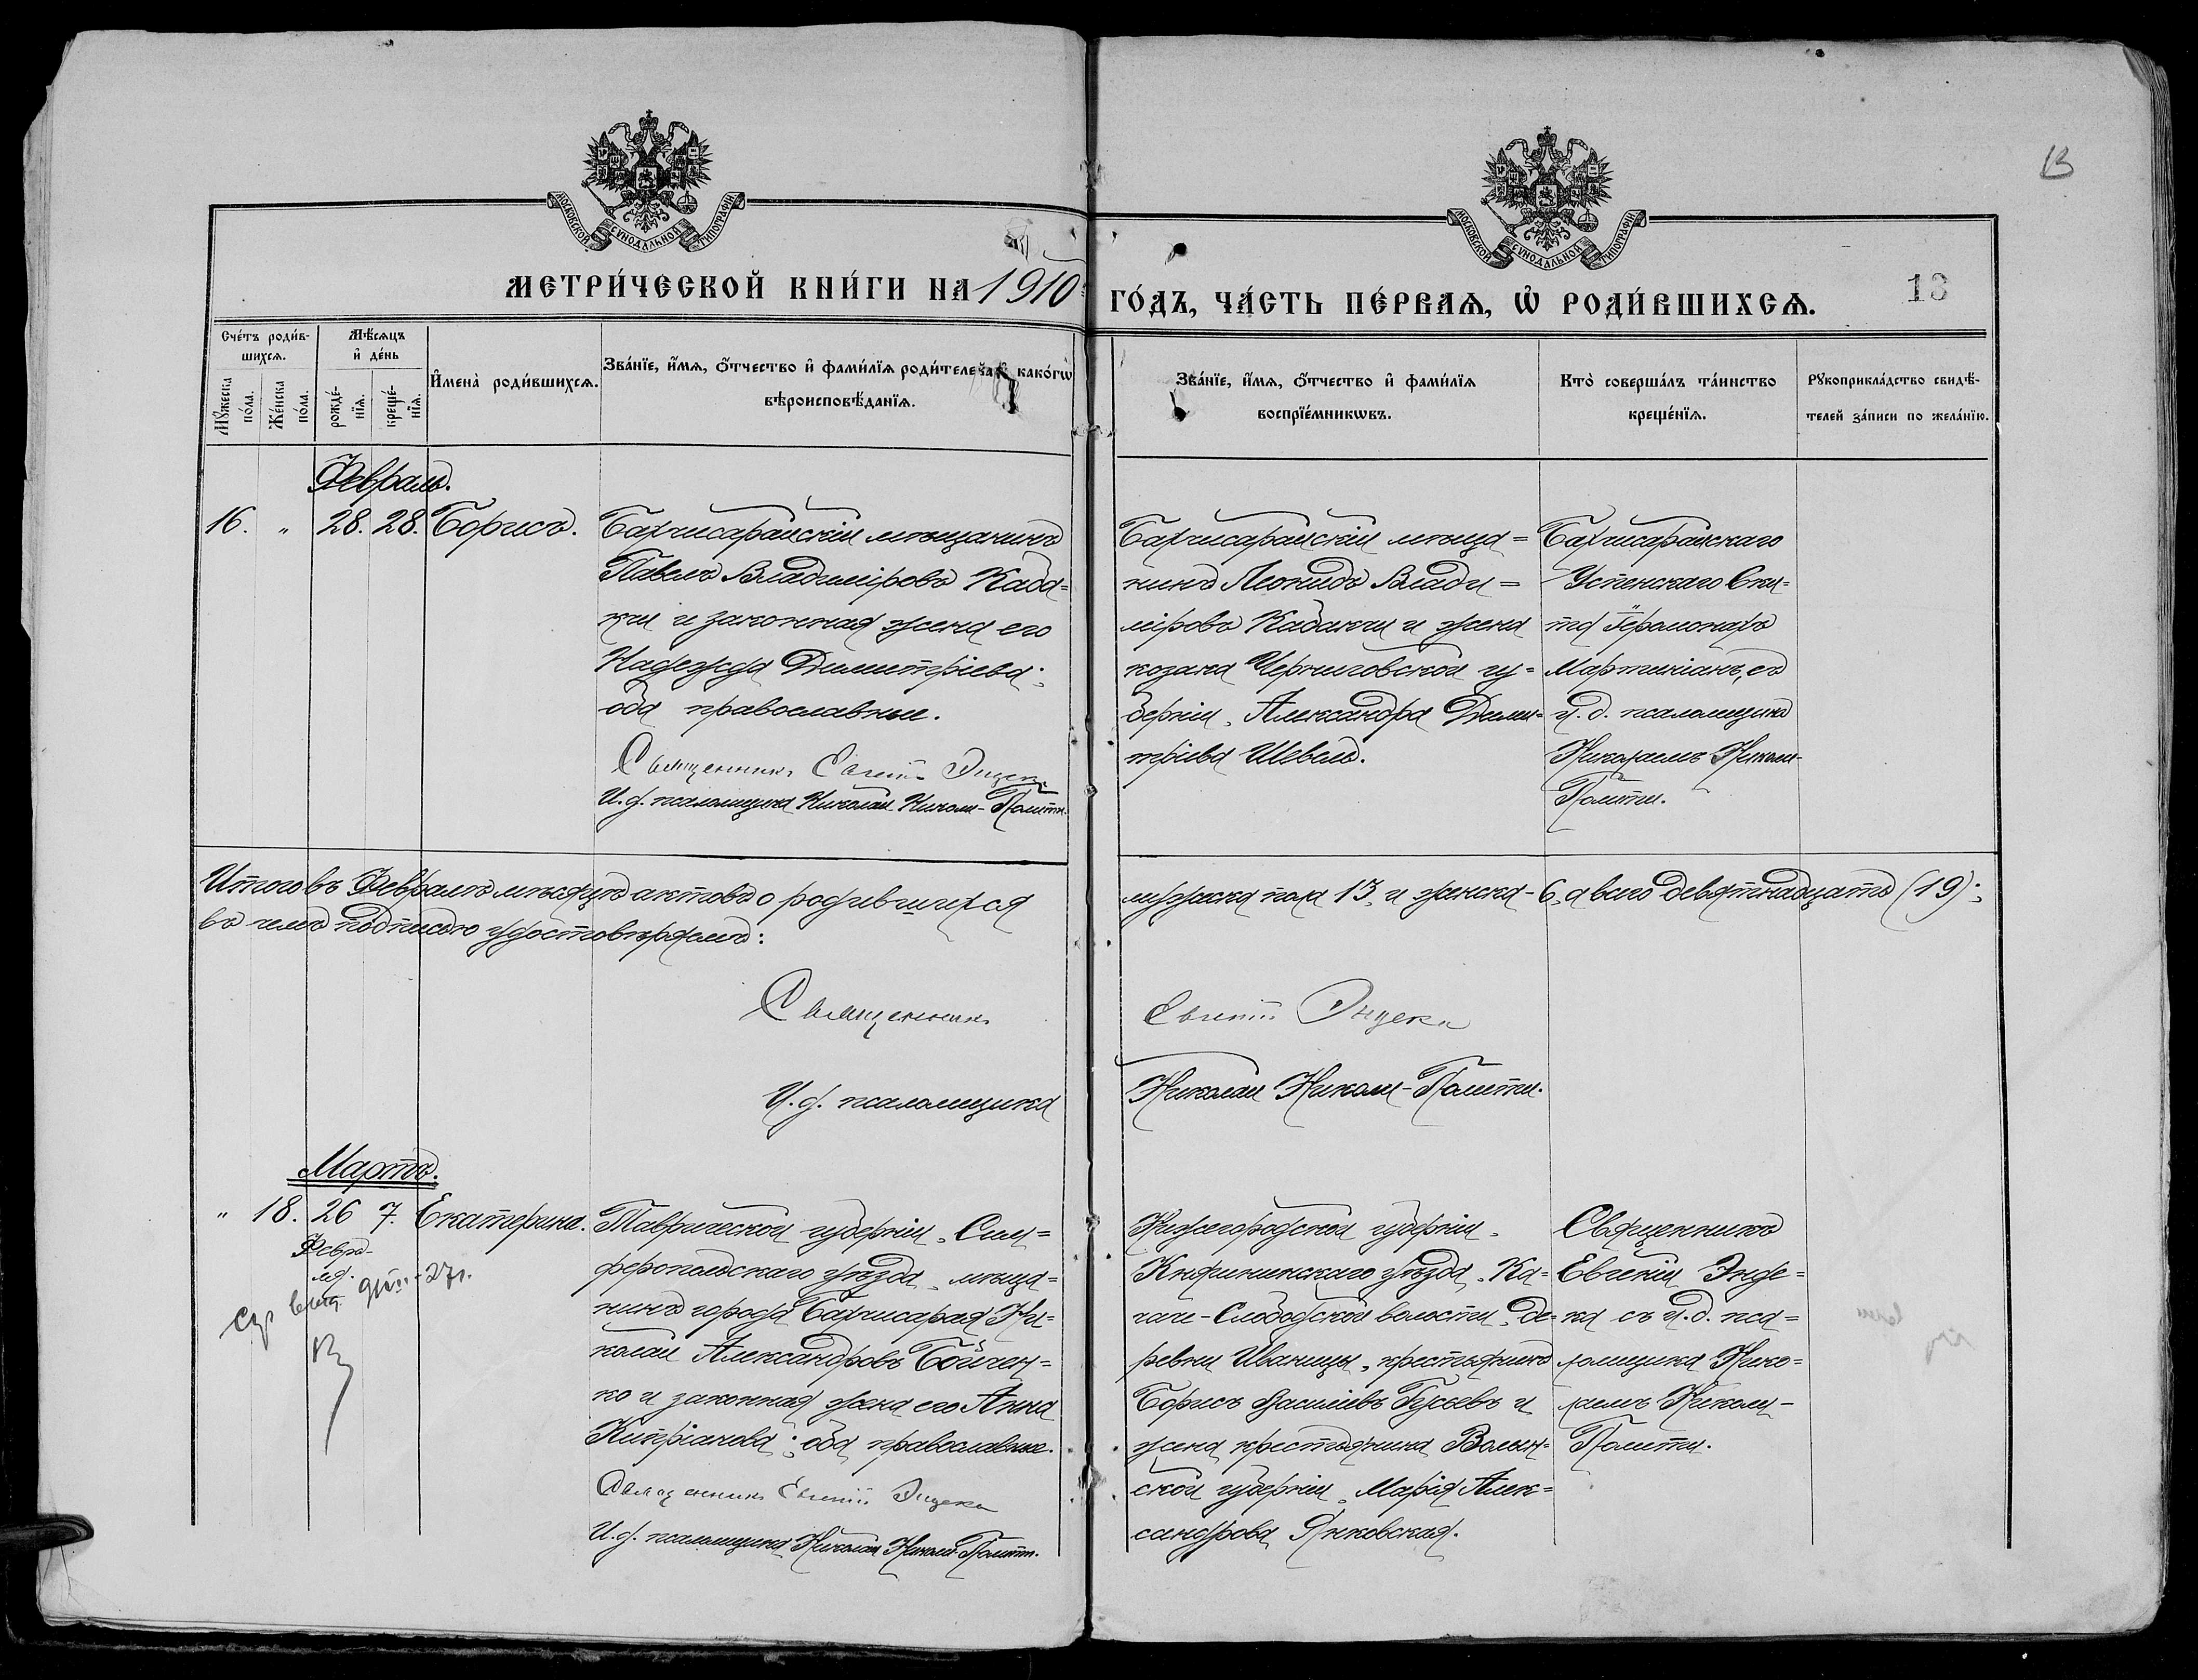 13
МОСКОВСКОЙ СѴНОДАЛЬНОЙ ТИПОГРАФІИ
МОСКОВСКОЙ СѴНОДАЛЬНОЙ ТИПОГРАФІИ
МЕТРИ́ЧЕСКОЙ КНИ́ГИ НА 1910
ГО́ДЪ, ЧА́СТЬ ПЕ́РВАѦ, Ѡ҆ РОДИ́ВШИХСѦ.
13
Сче́тъ роди́в-
шихсѧ.
Мꙋ́жеска
по́ла.
Же́нска
по́ла.
Мѣ́сѧцъ
и҆ де́нь
рожде́-
нїѧ.
креще́-
нїѧ.
И҆мена̀ роди́вшихсѧ.
Зва́нїе, и҆́мѧ, ѻ҆́тчество и҆ фами́лїѧ роди́телей, и҆ како́гѡ
вѣроисповѣ́данїѧ.
Зва́нїе, и҆́мѧ, ѻ҆́тчество и҆ фами́лїѧ
воспрїе́мникѡвъ.
Кто̀ соверша́лъ та́инство
креще́нїѧ.
Рꙋкоприкла́дство свидѣ́-
телей за́писи по жела́нїю.
Февраль.
16. " 28. 28. Борисъ.
Бахчисарайскій мѣщанинъ
Павелъ Владиміровъ Каба-
кчи и законная жена его
Надежда Димитріева;
оба православные.
Священникъ Евгеній Эндека
И.д. псаломщика Николай Николи-Поитти.
Бахчисарайскій мѣща=
нинъ Леонидъ Влади=
міровъ Кабакчи и жена
козака Черниговской гу=
берніи, Александра Дими-
тріева Шевель.
Бахчисарайскаго
Успенскаго Ски-
та Іеромонахъ
Мартиніанъ, съ
и.д. псаломщика
Николаемъ Николи-
Поитти.
Итого въ Февралѣ мѣсяцѣ актовъ о родившихся
мужеска пола 13, и женска - 6, а всего девятнадцать (19);
въ чемъ подписью удостовѣряемъ:
Священникъ
Евгеній Эндека
И.д. псаломщика
Николай Николи-Поитти.
Мартъ.
" 18. 26 7. Екатерина.
Февра-
ля.
Таврической губерніи, Сим=
феропольскаго уѣзда, мѣща=
нинъ города Бахчисарая Ни=
колай Александровъ Бойчен=
ко и законная жена его Анна
Кипріанова; оба православные.
Священникъ Евгеній Эндека
И.д. псаломщика Николай Николи-Поитти.
Нижегородской губерніи,
Княгининскаго уѣзда, Ка=
раче-Слободской волости, де=
ревни Иваницы, крестьянинъ
Борисъ Васильевъ Гусевъ и
жена крестьянина Волын=
ской губерніи, Марія Алек=
сандрова Янковская.
Священникъ
Евгеній Энде=
ка съ и.д. пса=
ломщика Нико=
лаемъ Николи-
Поитти.